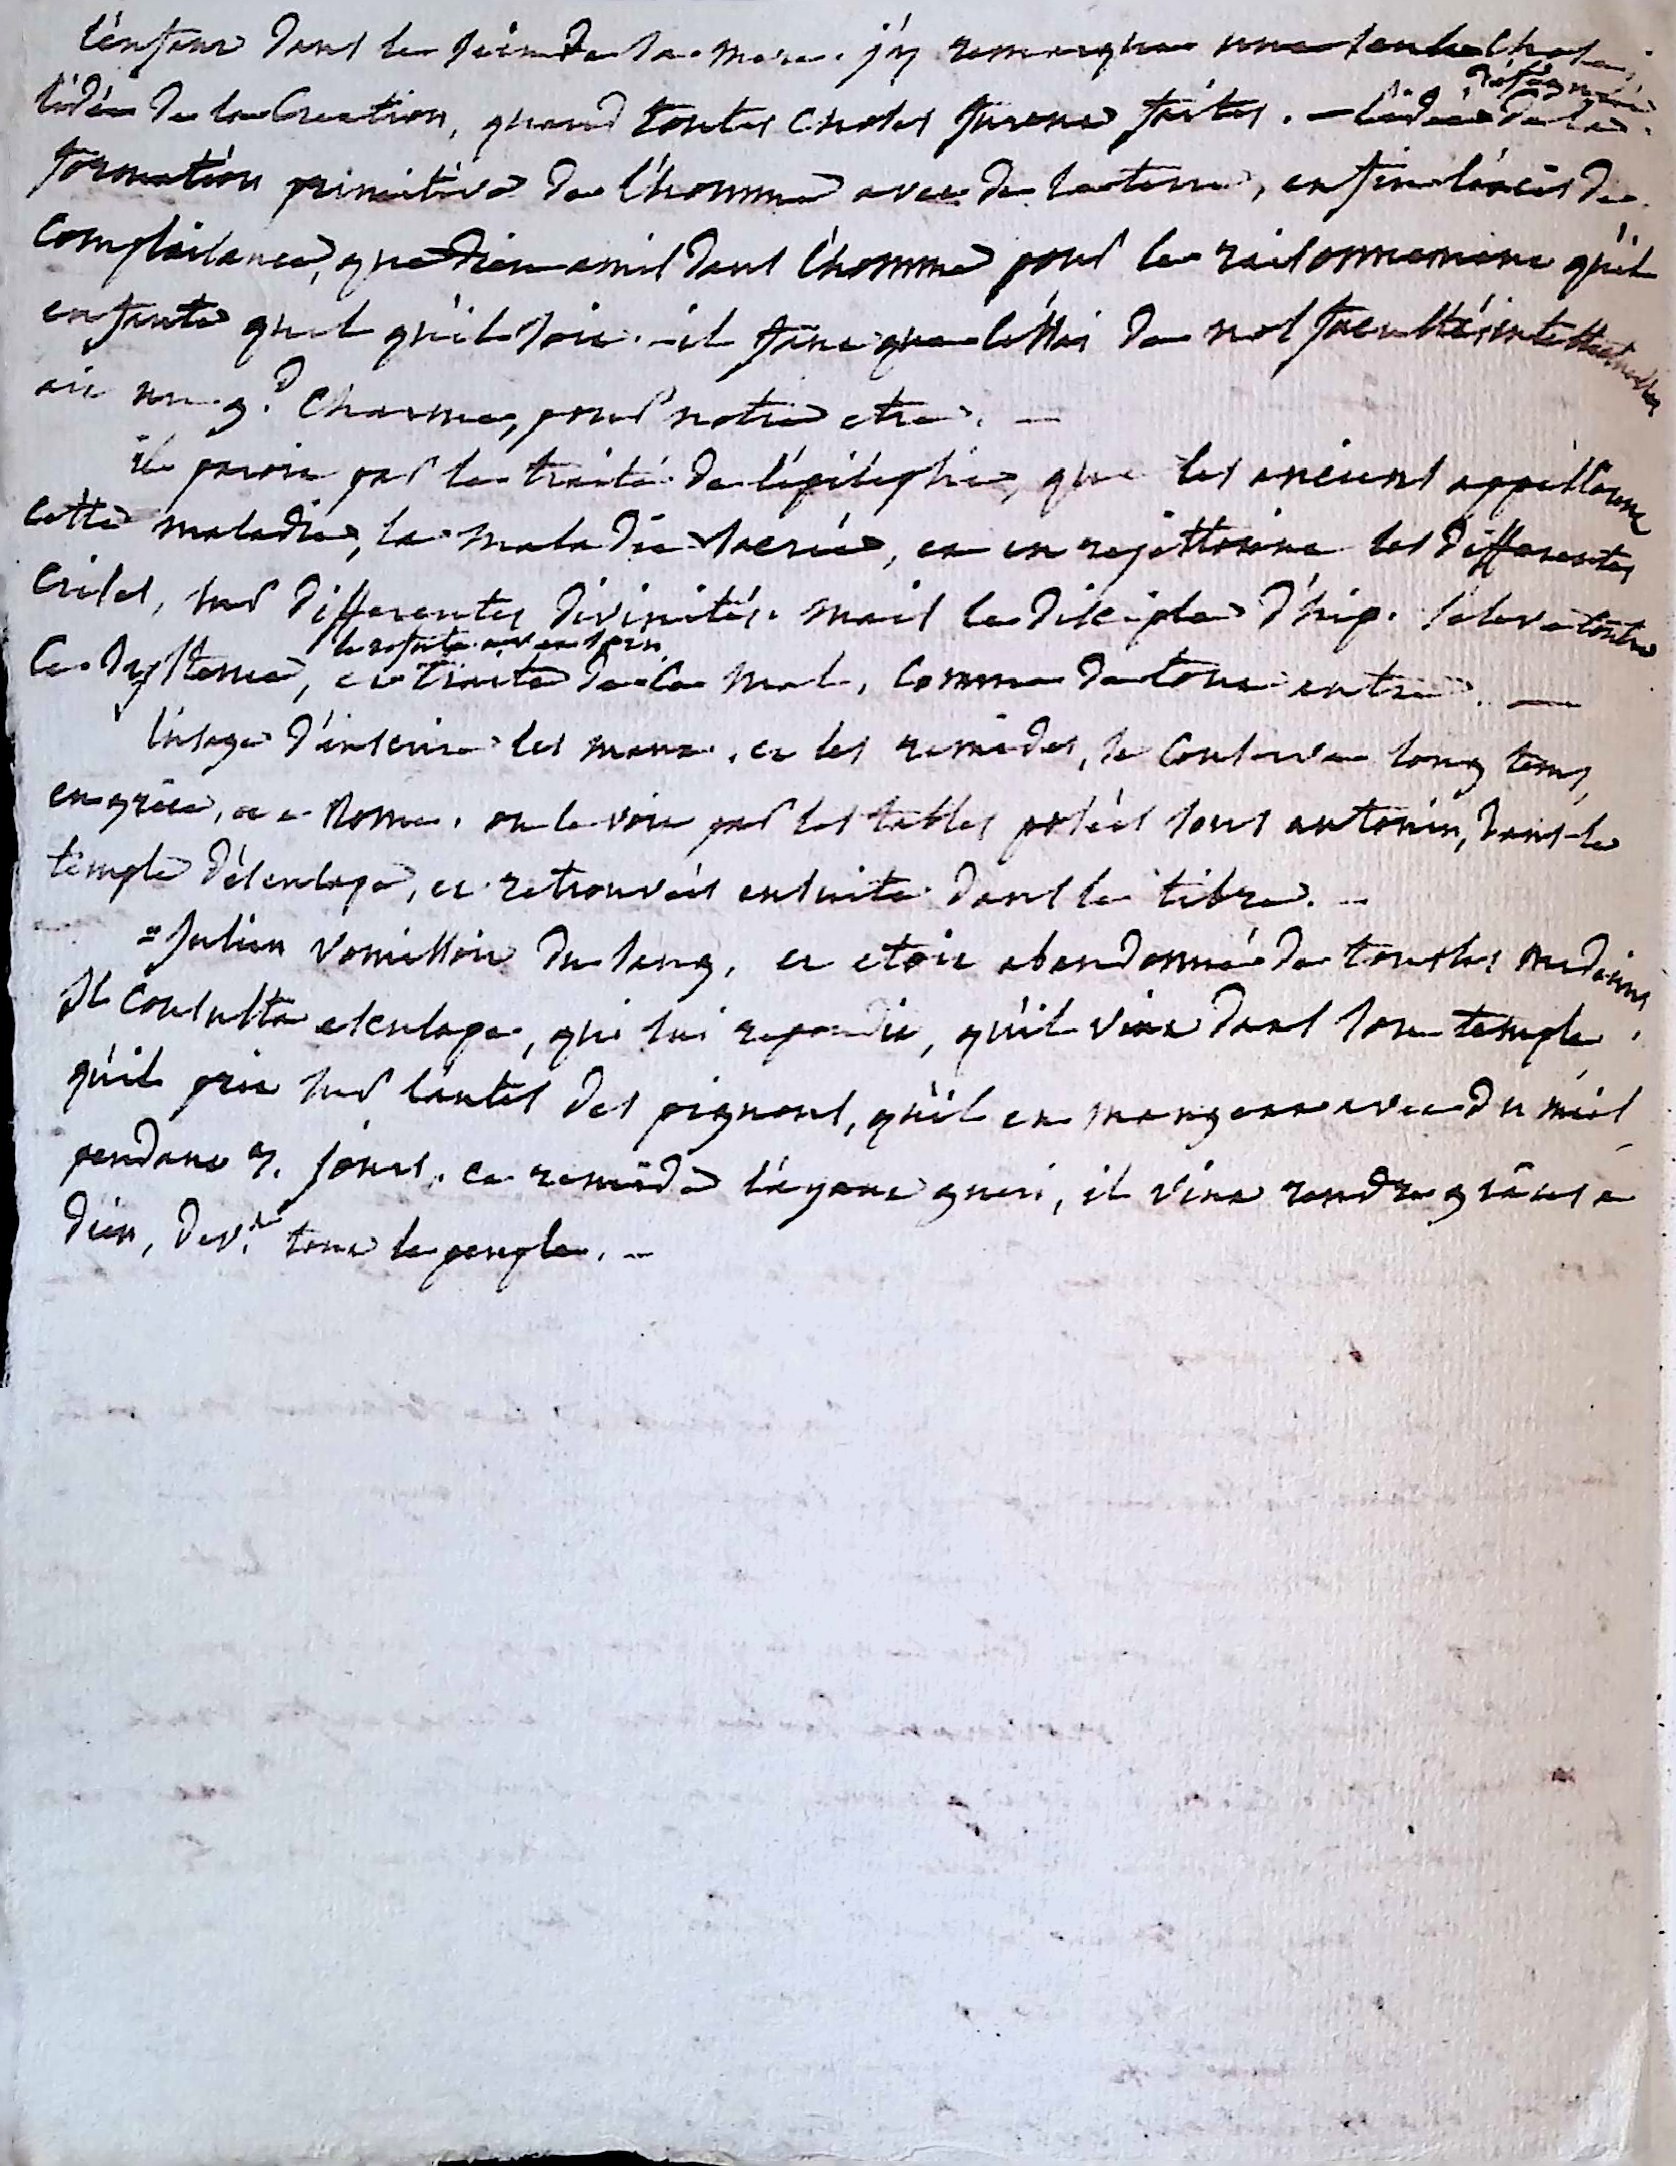 l'enfant dans le sein de sa mere. j'y remarque une seule chose,
l'idée de la Creation, quand toutes choses furent faites. — l'idée de la
formation primitive de l'homme avec de la terre, enfin l'excès de
complaisance, que dieu a mis dans l'homme pour le raisonnement qu'il
enfante quel qu'il soit. il faut que l'essai de nos facultés intellectuelles
ait un gd charme, pour notre etre. —
il paroit par le traité de l'épilépsie, que les anciens appelloient
cette maladie, la maladie sacrée, et en rejettoient les differentes
crises, sur differentes divinités. mais le disciple d'hip. s'eleve contre
le refute avec soin,
ce systeme, et traite de ce mal, comme de tout autre. —
l'usage d'inscrire les maux, et les remèdes, se conserva long tems,
en grèce, et a Rome. on le voit par les tables posées sous antonin, dans le
temple d'esculape, et retrouvées ensuite dans le tibre. —
= Julien vomissoit du sang, et etoit abandonné de tous les medecins
Il consulta esculape, qui lui repondit, qu'il vint dans son temple,
qu'il prit sur l'autel des pignons, qu'il en mangeat avec du miel
pendant 3. jours. ce remède l'ayant gueri, il vint rendre grâces a
dieu, devt. tout le peuple. —